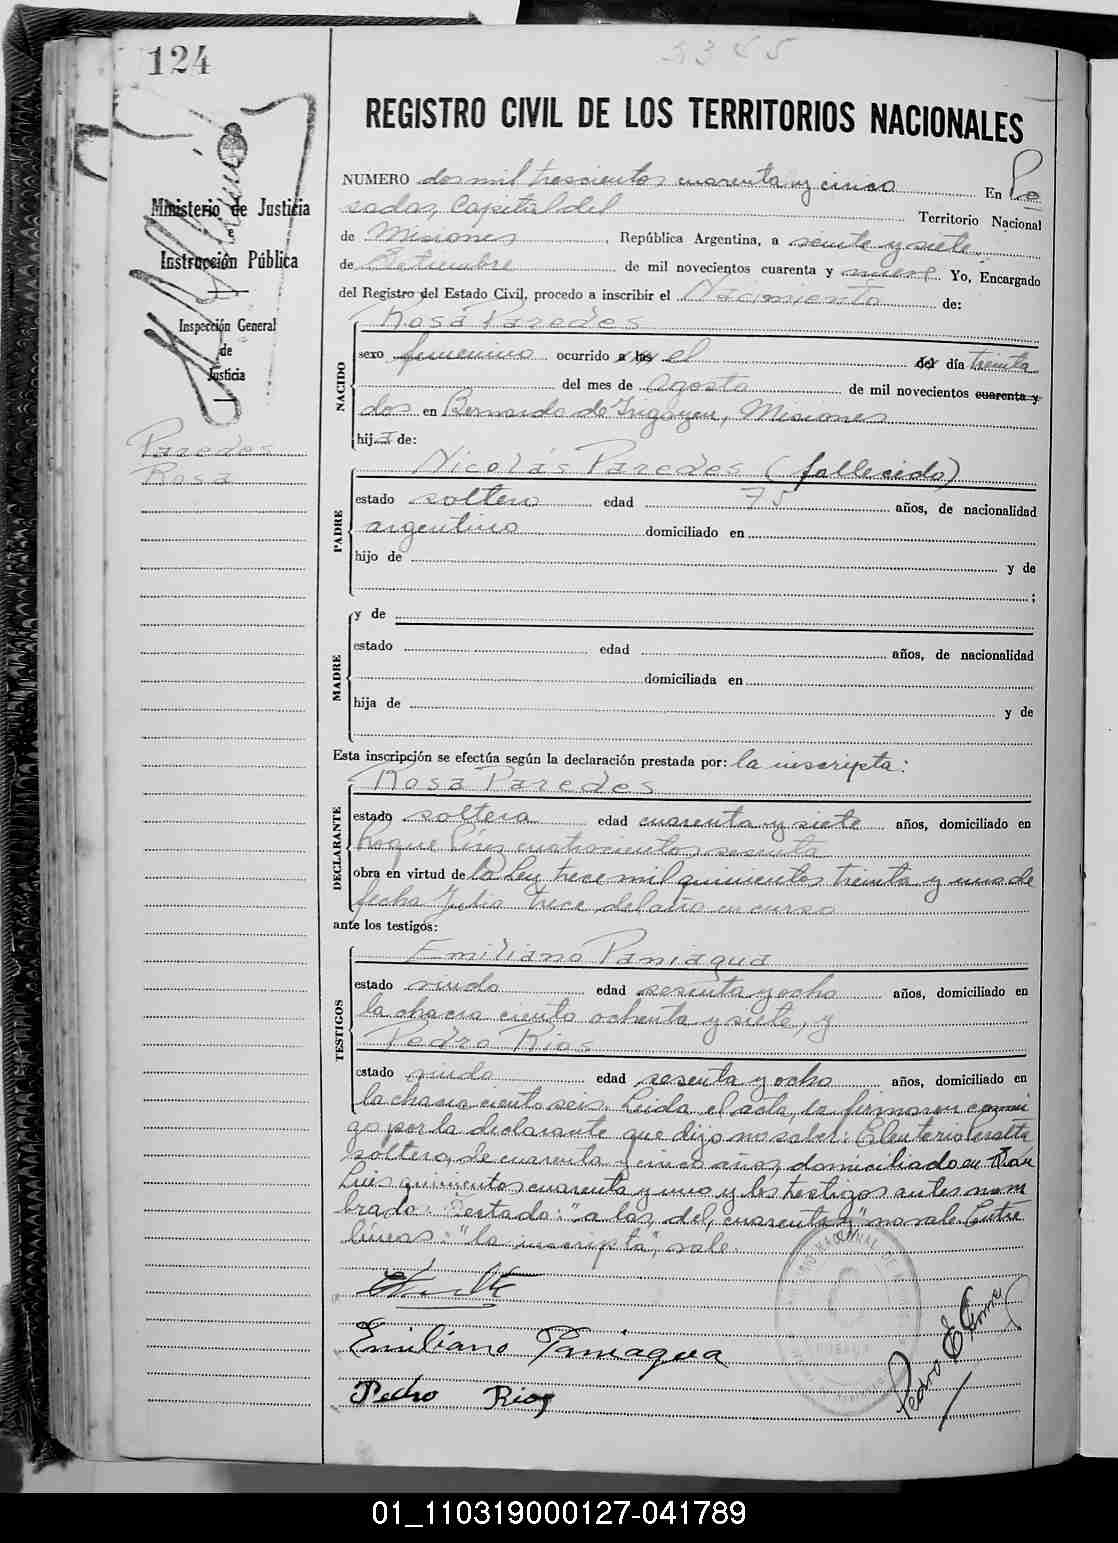 124
2345
REGISTRO CIVIL DE LOS TERRITORIOS NACIONALES
Ministerio de Justicia
e
Instrucción Pública
Inspección General
de
Justicia
Paredes
Rosa
NUMERO dos mil trescientos cuarenta y cinco En Po
sadas, Capital del Territorio Nacional
de Misiones, República Argentina, a veinte y siete
de Setiembre de mil novecientos cuarenta y nueve Yo, Encargado
del Registro del Estado Civil, procedo a inscribir el Nacimiento de:
NACIDO
Rosa Paredes
sexo femenino ocurrido a las el del día treinta
del mes de Agosto de mil novecientos cuarenta y
dos en Bernardo de Irigoyen, Misiones
hija de:
PADRE
Nicolás Paredes (fallecido)
estado soltero edad 75 años, de nacionalidad
argentino domiciliado en
hijo de y de
;
MADRE
y de
estado edad años, de nacionalidad
domiciliada en
hija de y de
Esta inscripción se efectúa según la declaración prestada por: la inscripta:
DECLARANTE
Rosa Paredes
estado soltera edad cuarenta y siete años, domiciliado en
Roque cuatrocientos sesenta
obra en virtud de la Ley trece mil quinientos treinta y uno de
fecha Julio trece del año en curso
ante los testigos:
TESTIGOS
Emiliano Paniagua
estado viudo edad sesenta y ocho años, domiciliado en
la chacra ciento ochenta y siete, y
Pedro Rios
estado viudo edad sesenta y ocho años, domiciliado en
la chacra ciento seis. Leida el acta, la firmaron conmi
go por la declarante que dijo no saber: Eleuterio Peralta
soltero, de cuarenta y cinco años, domiciliado en San
Luis quinientos cuarenta y uno y los testigos antes nom
brado: Testado: "a las, del, cuarenta y" no vale. Entre
líneas: "la inscripta", vale.
Emiliano Paniagua
Pedro Rios
Pedro E Gomez
01_110319000127-041789